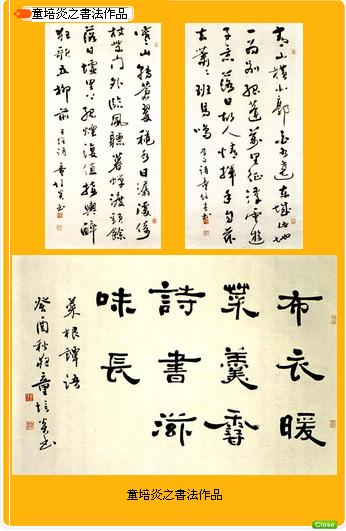 童培炎之書法作品
青山橫北郭白水遶東城此地
一為別孤蓬萬里征浮雲遊
子意落日故人情揮手自茲
去蕭蕭班馬鳴 李白詩童培炎書
寒山轉蒼翠秋水日潺湲倚
杖柴門外臨風聽暮蟬渡頭餘
落日墟里上孤煙復值接輿醉
狂歌五柳前 王維詩 童培炎書
布衣暖
菜羹香
詩書滋
味長
菜根譚語
癸酉秋 童培炎書
童培炎之書法作品
Close